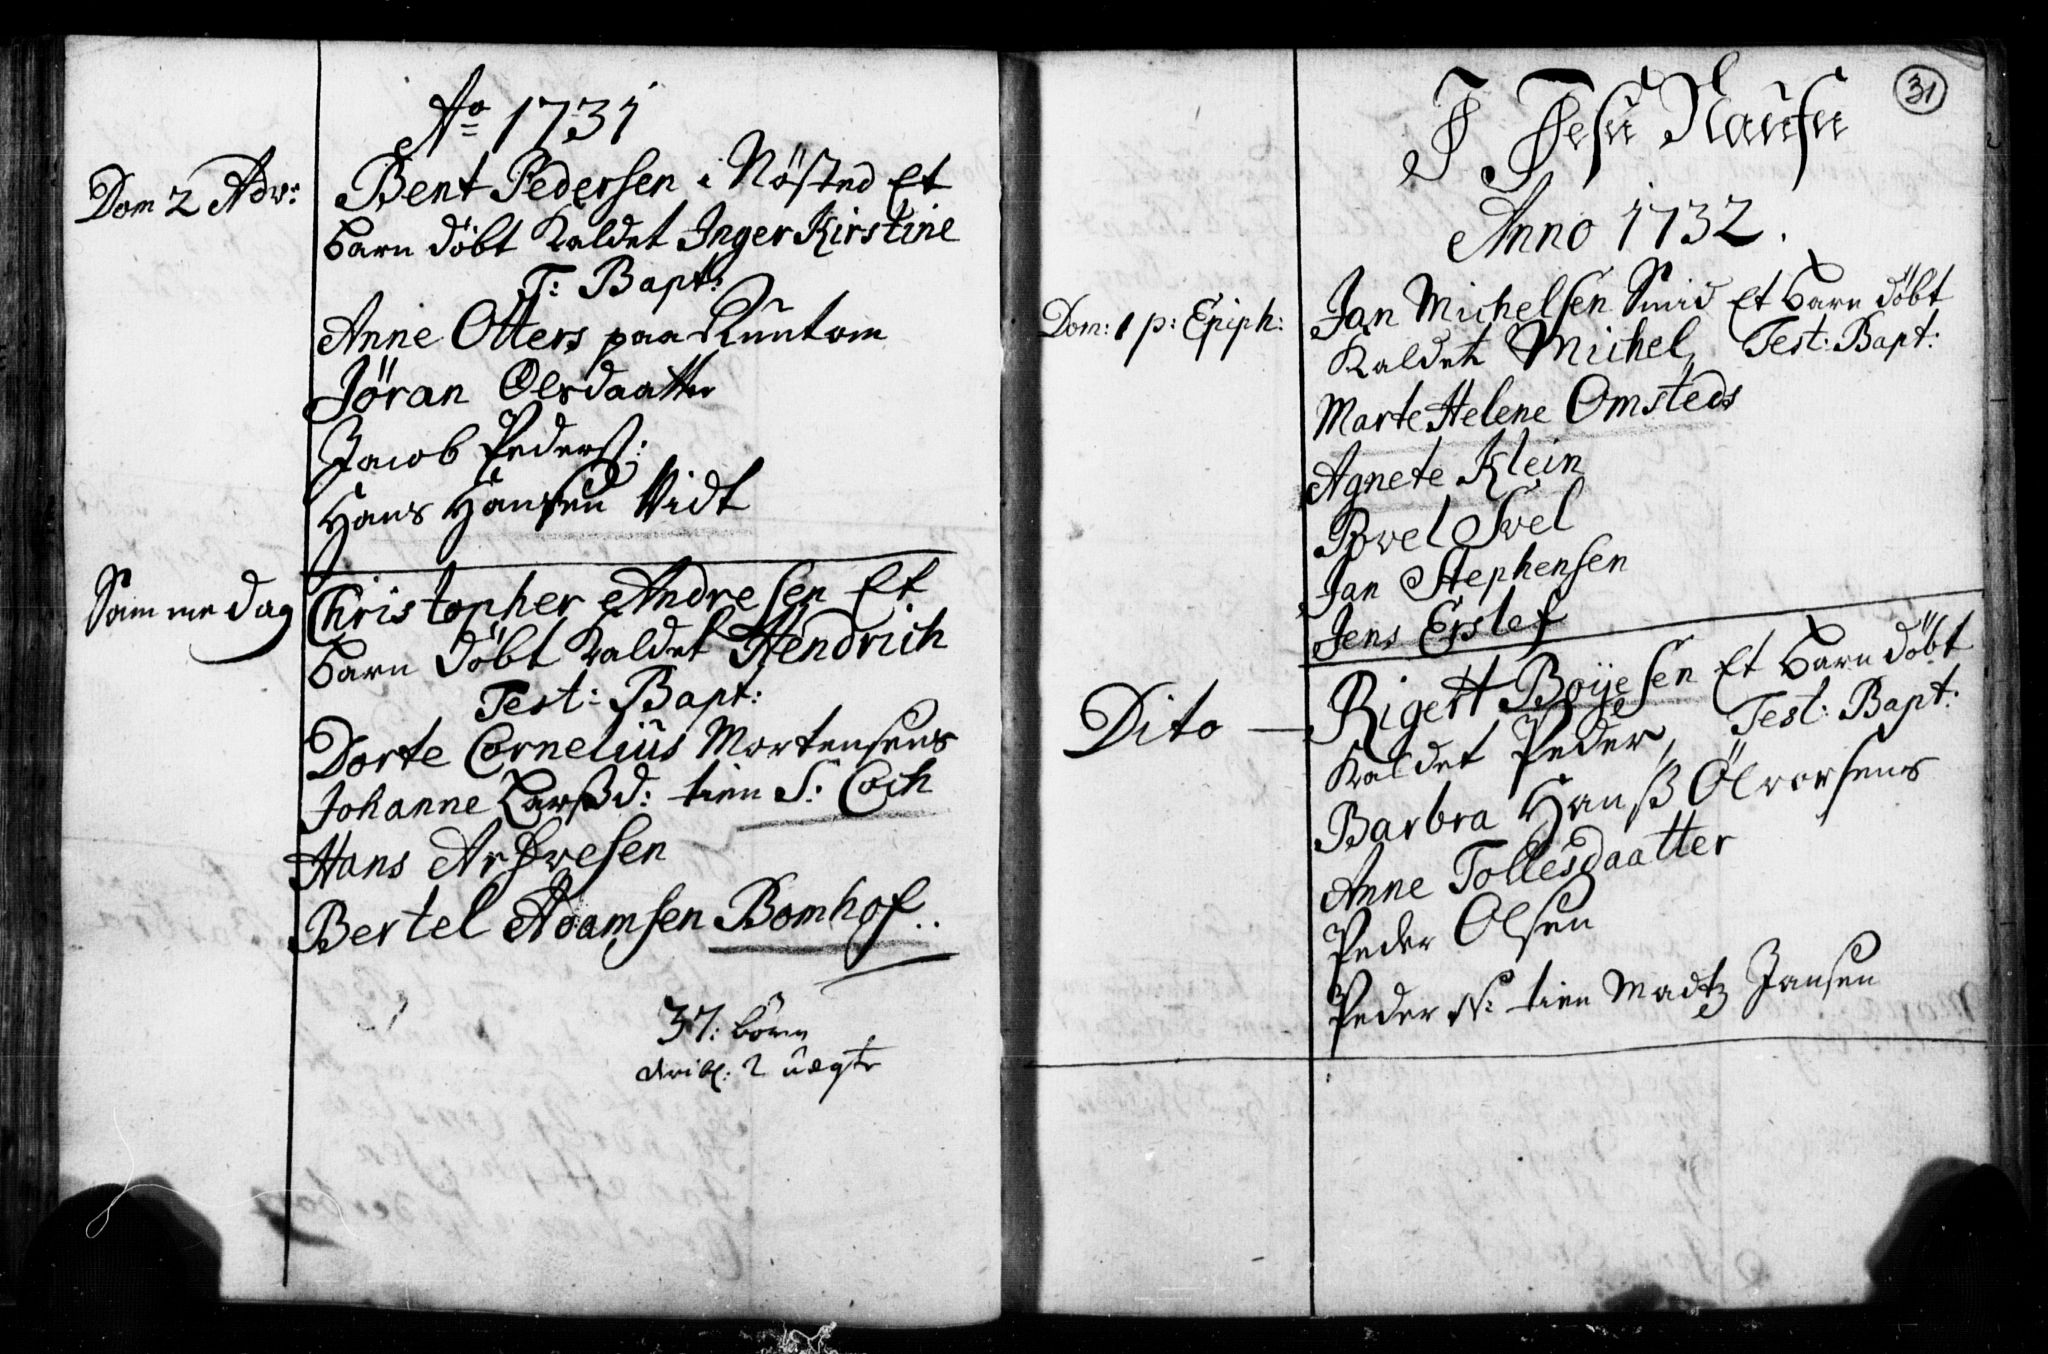 Ao 1731
Dom 2 Adv: Bent Pedersen i Nösted Et
barn döbt kaldet Inger Kirstine
T: Bapt:
Anne Otters paa
Jöran Olsdaatter
Jacob Peders:
Hans Hansen Vidt
Samme dag Christopher Andresen Et
barn döbt kaldet Hendrich
Test: Bapt:
Dorte Cornelius Mortensens
Johanne Larsd: tien S: Coch
Hans Arfvesen
Bertel Adamsen Bomhof..
37: börn
2 uægte
31
I Jesu Nafn
Anno 1732.
Dom: 1 p: Epiph: Jan Michelsen Smid Et barn döbt
Kaldet Michel, Test: Bapt:
Marte Helene Omsteds
Agnete Klein
Povel Juel
Jan Stephensen
Jens Erslef
Dito — Rigert Boijesen Et barn döbt
Kaldet Peder, Test: Bapt:
Barbra Hanß Olversens
Anne Tollesdaatter
Peder Olsen
Peder N: tien Madtz Jansen